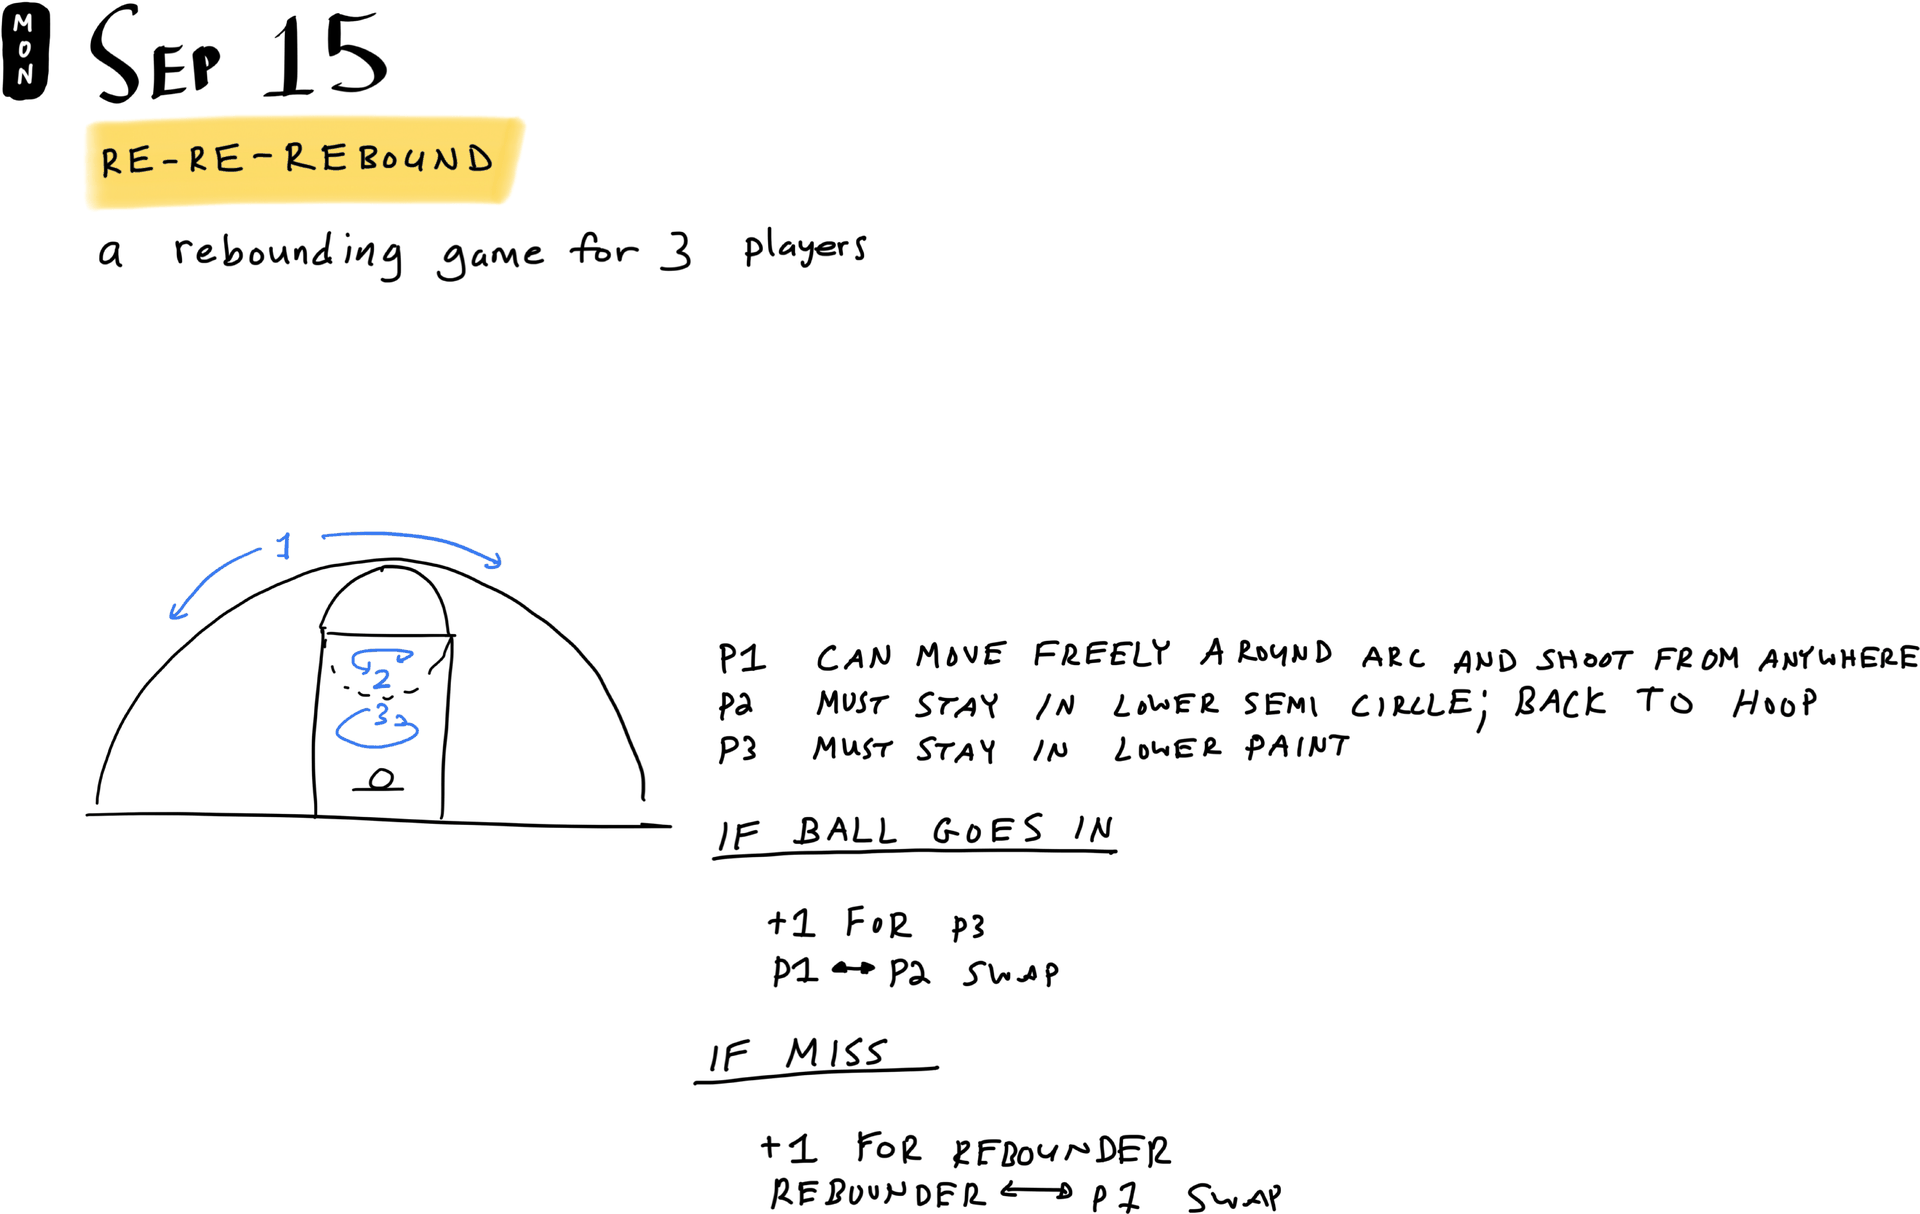 MON
SEP 15
RE-RE-REBOUND
a rebounding game for 3 players
1
2
3
P1 CAN MOVE FREELY AROUND ARC AND SHOOT FROM ANYWHERE
P2 MUST STAY IN LOWER SEMI CIRCLE; BACK TO HOOP
P3 MUST STAY IN LOWER PAINT
IF BALL GOES IN
+1 FOR P3
P1 ↔ P2 SWAP
IF MISS
+1 FOR REBOUNDER
REBOUNDER ↔ P1 SWAP